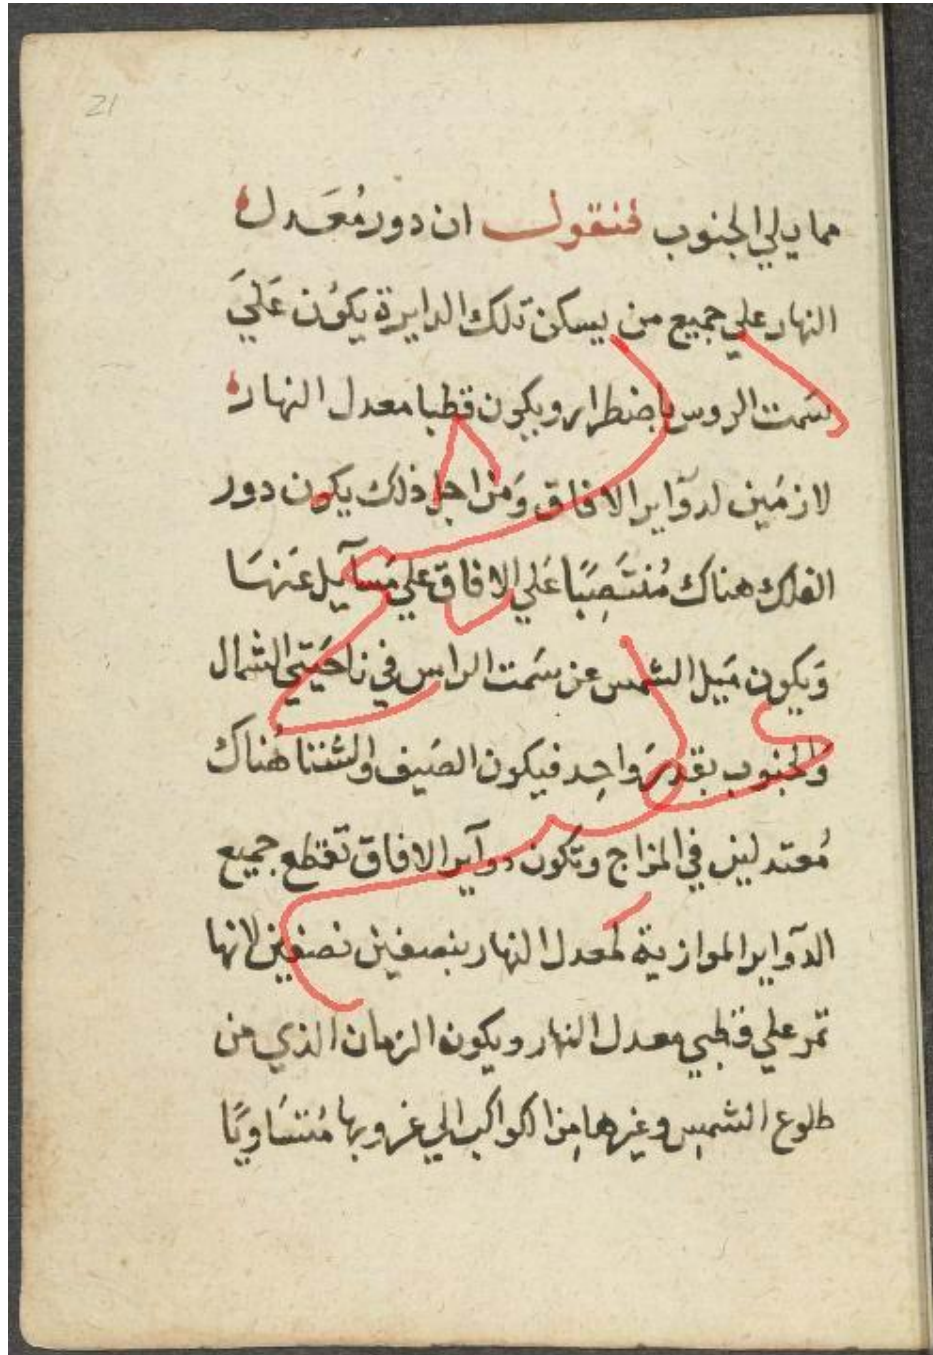 21
مما يلي الجنوب فنقول ان دور مُعَدل
النهار علي جميع من يسكن تلك الدايرة يكوُن عَليَ
سَمت الروس باضطرار ويكون قطبا معدل النهار
لازمَين لدوَاير الافاق وَمن اجل ذلك يكون دور
الفلك هناك مُنتَصِبًا عَلي الافاق علي مَسآيل عَنهَا
وَيكون مَيل الشمس عن سَمت الراس في ناحَيتي الشمال
وَالجنوب بقدرَ واحِد فيكون الصَيف والشتنا هُناك
مُعتدلين في المزاج وتكون دوآير الافاق تقطع جميع
الدَواير الموازية لمعدل النهار بنصفين نصفين لانها
تمر علي قطبي معدل النهار ويكون الزمان الذي من
طلوع الشمسِ وغيرها مِن الكواكب الي غروبها مُتسَاويًا